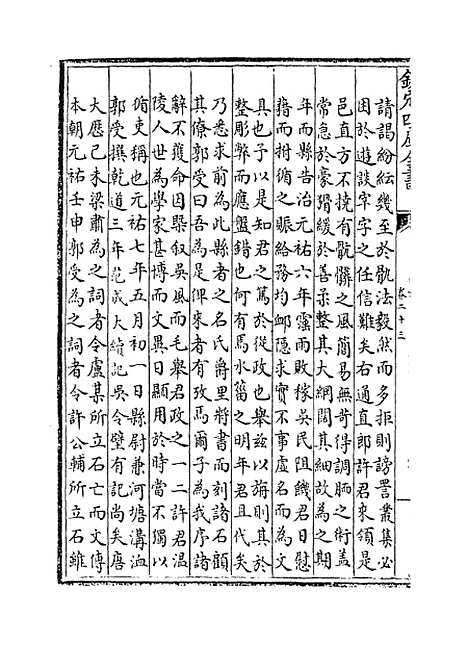 欽定四庫全書
卷二十三
請謁紛紜幾至於骫法毅然而多拒則謗讟叢集必
困於遊談宰字之任信難矣右通直郎許君來領是
邑直方不撓有骯髒之風簡易無苛得調胹之術蓋
常急於豪猾緩於善柔整其大綱闊其細故為之期
年而縣告治元祐六年霪雨敗稼吳民阻饑君日慰
藉而拊循之賑給務均䘏隠求實不事虚名而為文
具也予以是知君之篤於從政也舉兹以旃則其於
整彫弊而應盤錯也何有焉水菑之明年君且代矣
乃悉求前為此縣者之名氏爵里將書而刻諸石顧
其僚郭受曰吾為是俾來者有攷焉爾子為我序諸
辭不獲命因槩叙吳風而毛舉君政之一二許君温
陵人世為學家甚博而文異日顯用於時當不獨以
循吏稱也元祐七年五月初一日縣尉兼河塘溝洫
郭受撰乾道三年范成大續記吳令壁有記尚矣唐
大歴己未梁肅為之詞者令盧某所立石亡而文傳
本朝元祐壬申郭受為之詞者令許公輔所立石雖